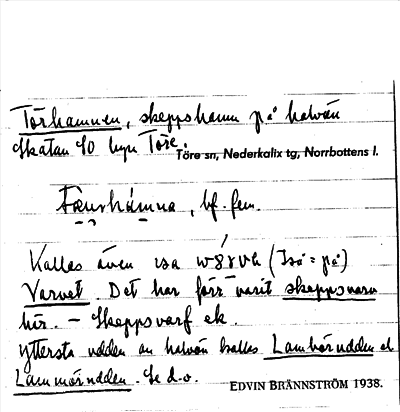 Törhamnen, skeppshamn på halvön
Skatan SO byn Töre.
Töre sn, Nederkalix tg, Norrbottens l.
bf. fem.
Kallas även isa (Isa = på)
Varvet. Det har förr varit skeppsvarv
här. – Skeppsvarf ek.
yttersta udden av halvön kallas Lambörudden el
Lammörudden. Se d.o.
EDVIN BRÄNNSTRÖM 1938.